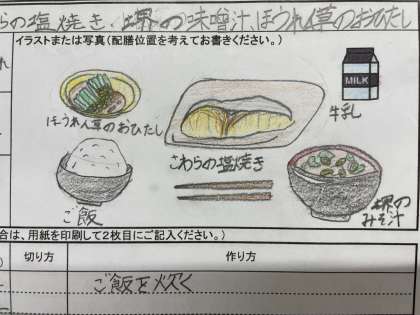 らの塩焼き、堺の味噌汁、ほうれん草のおひたし
イラストまたは写真(配膳位置を考えてお書きください。)
MILK
牛乳
ほうれん草のおひたし
さわらの塩焼き
ご飯
堺の
みそ汁
合は、用紙を印刷して2枚目にご記入ください。)
切り方
作り方
ご飯を炊く